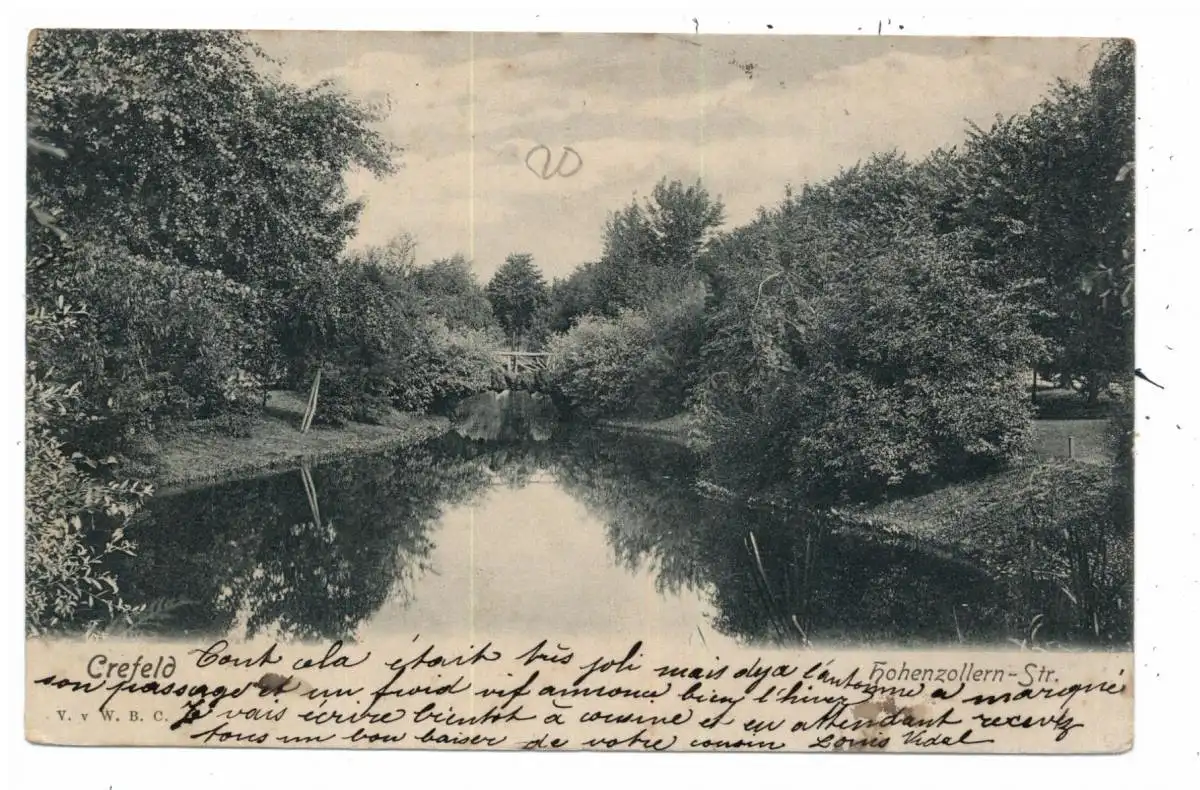 20
Crefeld
Hohenzollern-Str.
V. v W. B. C.
Tout cela était très joli mais deja l'automne a marqué
son passage et un froid vif annonce bien l'hiver
Je vais écrire bientôt à cousine et en attendant recevez
tous un bon baiser de votre cousin Louis Vidal